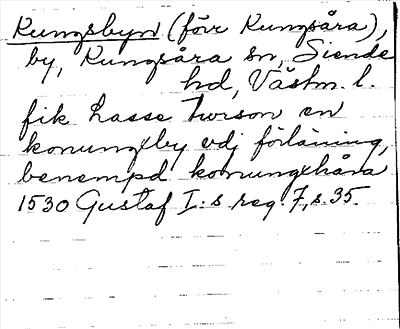 Kungsbyn (förr Kungsåra),
by, Kungsåra sn, Siende
hd, Västm. l.
fik Lasse Twrson en
konungxby vdj förläning,
benempd konungxhåra
1530 Gustaf I:s reg. 7, s. 35.